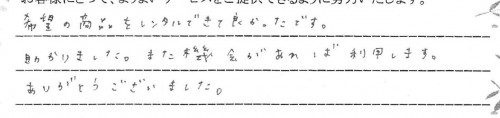 お客様にとって、よりよいサービスをご提供できるように努力いたします。
希望の商品をレンタルできて良かったです。
助かりました。また機会があれば利用します。
ありがとうございました。